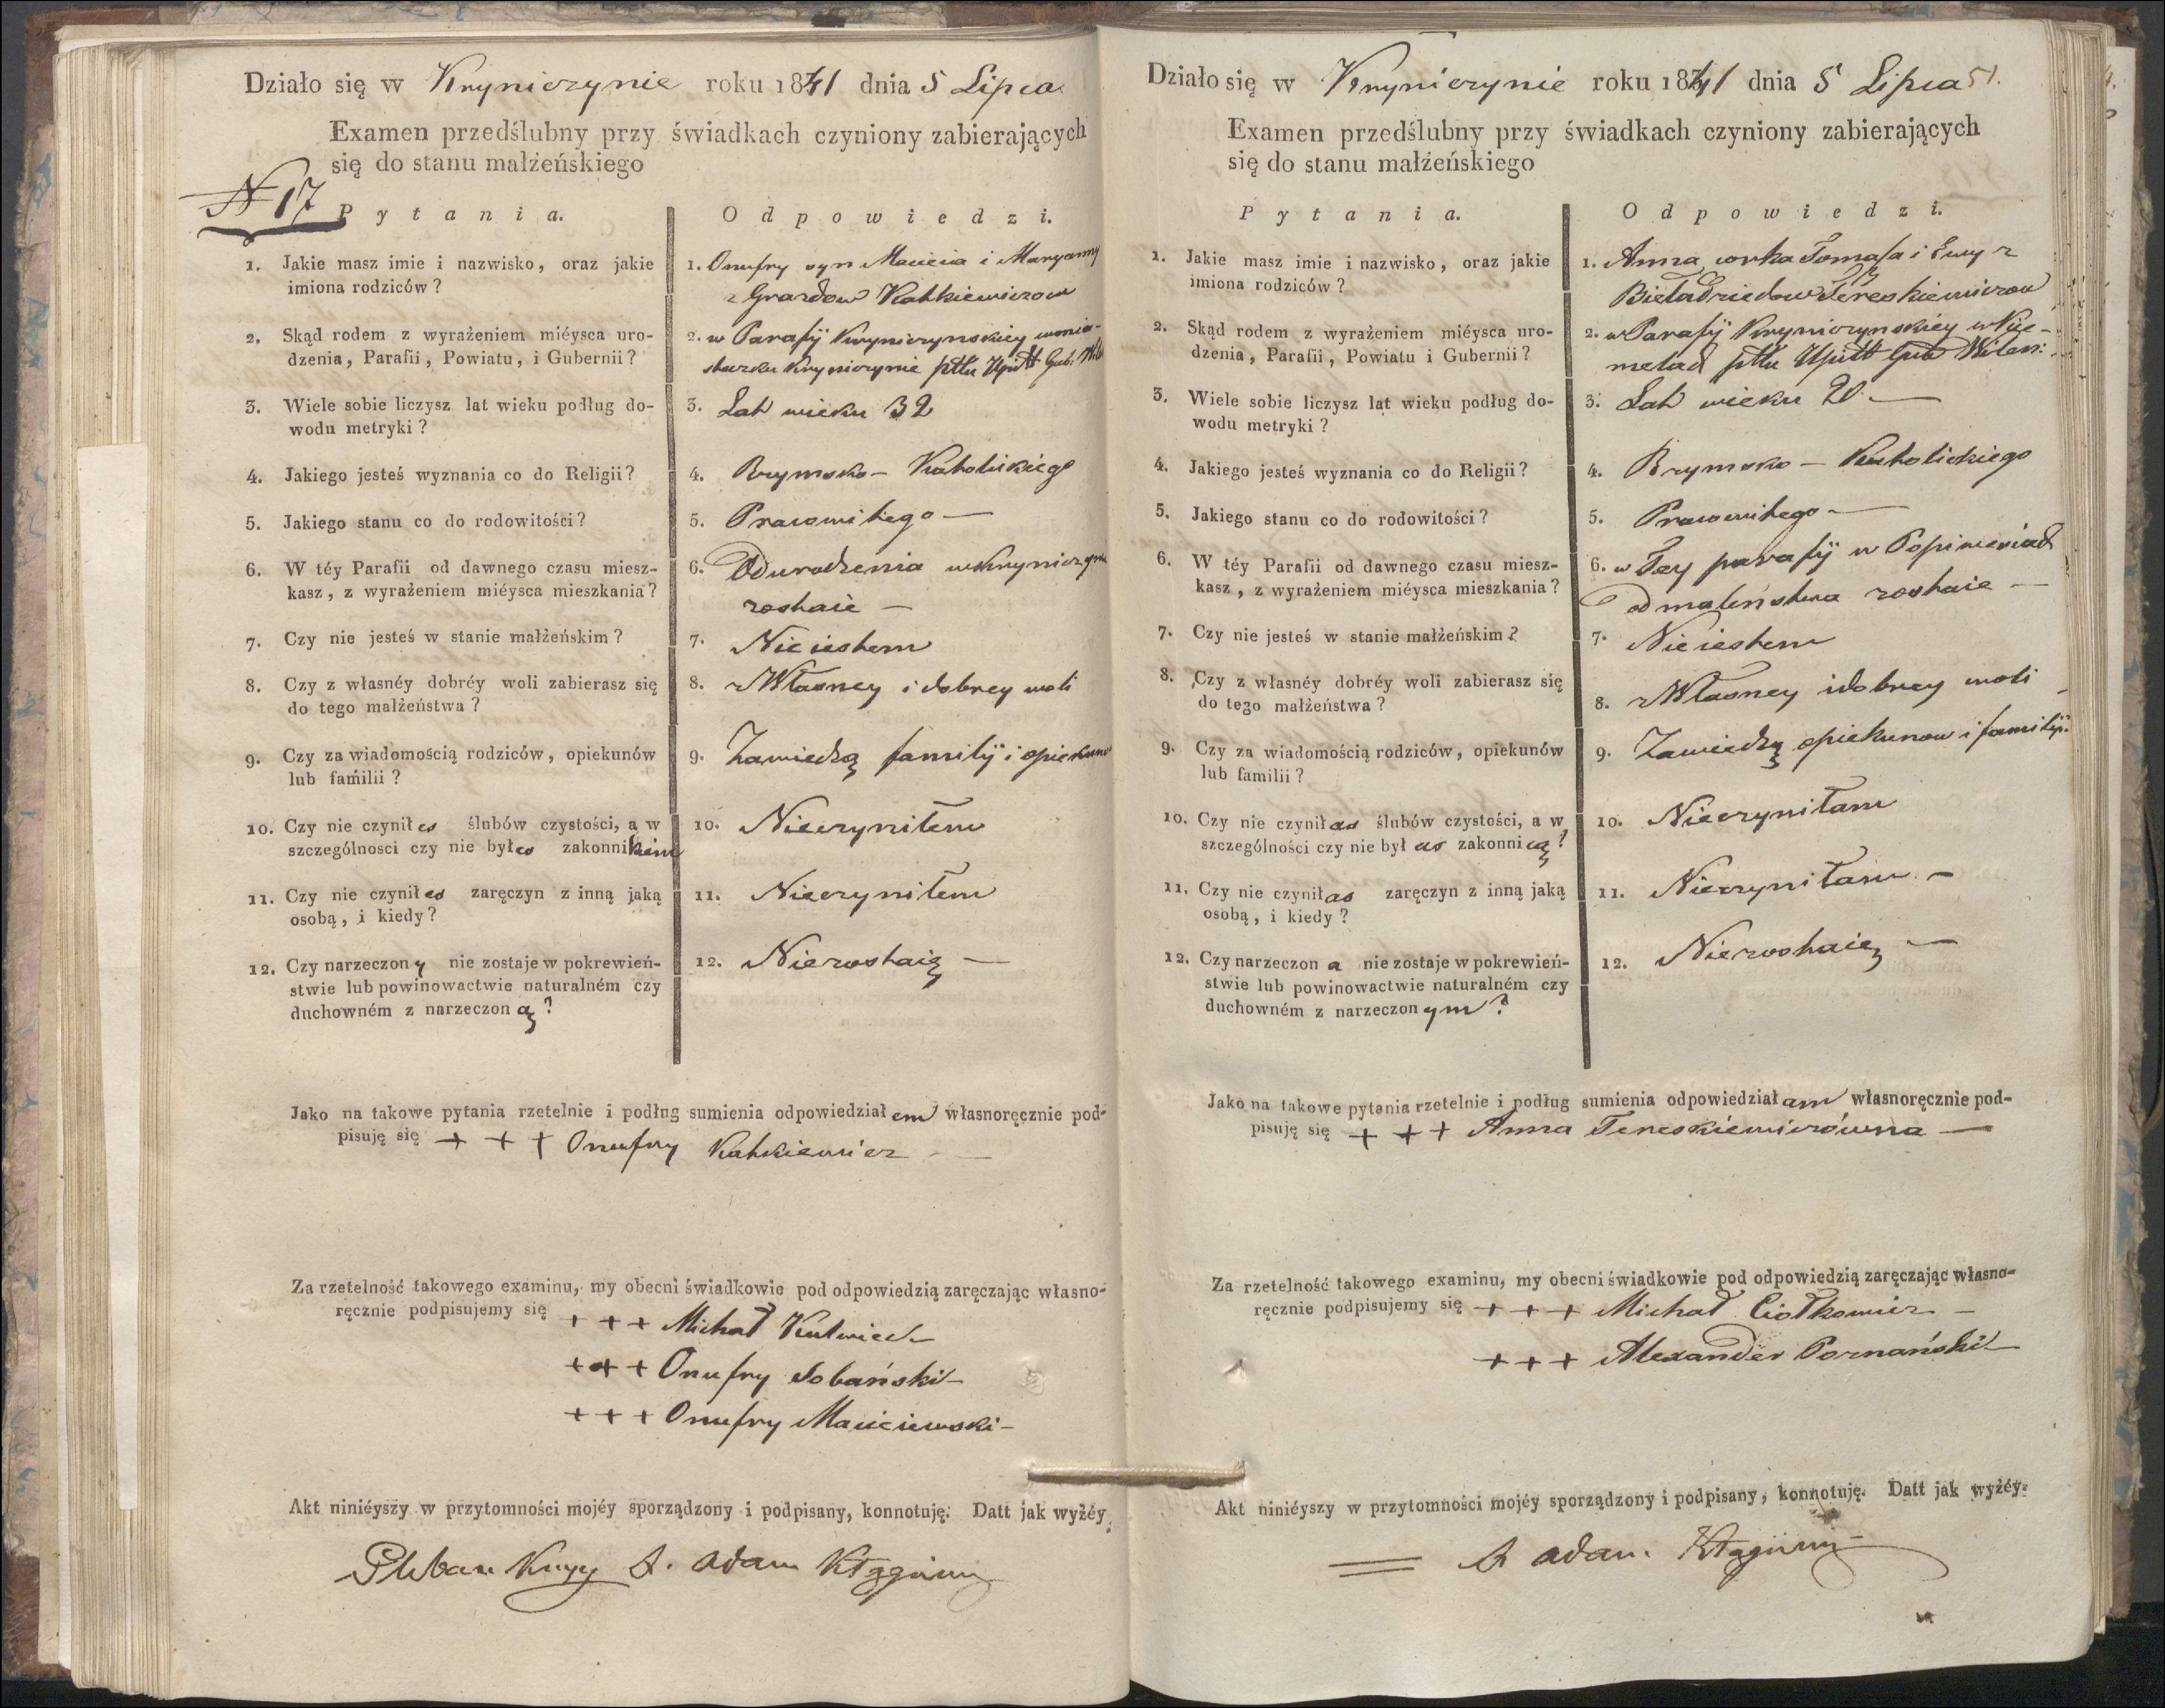 Działo się w Kryniczynie roku 1841 dnia 5 Lipca
Examen przedślubny przy świadkach czyniony zabierających
się do stanu małżeńskiego
N 17
Pytania.
Odpowiedzi.
1. Jakie masz imie i nazwisko, oraz jakie
imiona rodziców?
1. Onufry syn Macieia i Maryanny
z Grazdow Katkiewiczow
2. Skąd rodem z wyrażeniem miéysca uro-
dzenia, Parafii, Powiatu, i Gubernii?
2. w Parafij Kryniczynskiey wmia-
steczku Krynicznie pttu Upitt Gub: Wile
3. Wiele sobie liczysz lat wieku podług do-
wodu metryki?
3. Lat wieku 32
4. Jakiego jesteś wyznania co do Religii?
4. Rzymsko - Katolickiego
5. Jakiego stanu co do rodowitości?
5. Pracowitego —
6. W téy Parafii od dawnego czasu miesz-
kasz, z wyrażeniem miéysca mieszkania?
6. Od urodzenia w Krynicznie
zostaie —
7. Czy nie jesteś w stanie małżeńskim?
7. Nie iestem
8. Czy z własnéy dobréy woli zabierasz się
do tego małżeństwa?
8. z Własney i dobrey woli
9. Czy za wiadomością rodziców, opiekunów
lub familii?
9. Zawiedzą familij i opiekunow
10. Czy nie czyniłes ślubów czystości, a w
szczególnosci czy nie byłes zakonnikiem
10. Nieczyniłem
11. Czy nie czyniłes zaręczyn z inną jaką
osobą, i kiedy?
11. Nieczyniłem
12. Czy narzeczony nie zostaje w pokrewień-
stwie lub powinowactwie naturalném czy
duchowném z narzeczoną?
12. Niezostaię —
Jako na takowe pytania rzetelnie i podług sumienia odpowiedziałem własnoręcznie pod-
pisuję się + + + Onufry Katkiewicz
Za rzetelność takowego examinu, my obecni świadkowie pod odpowiedzią zaręczając własno-
ręcznie podpisujemy się + + + Michał Kutwicz
+ + + Onufry Sobański
+ + + Onufry Macieiewski
Akt niniéyszy w przytomności mojéy sporządzony i podpisany, konnotuję. Datt jak wyżéy.
Pleban X. Adam
Działo się w Krynicznie roku 1841 dnia 5 Lipca 51.
Examen przedślubny przy świadkach czyniony zabierających
się do stanu małżeńskiego
Pytania.
Odpowiedzi.
1. Jakie masz imie i nazwisko, oraz jakie
imiona rodziców?
1. Anna corka Tomasza i Ewy z
Bieladziedow Tereskiewiczow
2. Skąd rodem z wyrażeniem miéysca uro-
dzenia, Parafii, Powiatu i Gubernii?
2. w Parafij Krynicznskiey
pttu Upitt Gub Wilen:
3. Wiele sobie liczysz lat wieku podług do-
wodu metryki?
3. Lat wieku 20 —
4. Jakiego jesteś wyznania co do Religii?
4. Rzymsko — Katholickiego
5. Jakiego stanu co do rodowitości?
5. Pracowitego —
6. W téy Parafii od dawnego czasu miesz-
kasz, z wyrażeniem miéysca mieszkania?
6. w Tey parafij w
od maleństwa zostaie —
7. Czy nie jesteś w stanie małżeńskim?
7. Nie iestem
8. Czy z własnéy dobréy woli zabierasz się
do tego małżeństwa?
8. z Własney i dobrey woli
9. Czy za wiadomością rodziców, opiekunów
lub familii?
9. Zawiedzą opiekunow i familij
10. Czy nie czyniłas ślubów czystości, a w
szczególności czy nie był as zakonnicą?
10. Nieczyniłam
11. Czy nie czyniłas zaręczyn z inną jaką
osobą, i kiedy?
11. Nieczyniłam —
12. Czy narzeczona nie zostaje w pokrewień-
stwie lub powinowactwie naturalném czy
duchowném z narzeczonym?
12. Niezostaię —
Jako na takowe pytania rzetelnie i podług sumienia odpowiedziałam własnoręcznie pod-
pisuję się + + + Anna Tereskiewiczówna —
Za rzetelność takowego examinu, my obecni świadkowie pod odpowiedzią zaręczając własno-
ręcznie podpisujemy się + + + Michał Ciołkowicz —
+ + + Alexander Poznański
Akt niniéyszy w przytomności mojéy sporządzony i podpisany, konnotuję. Datt jak wyżéy.
X Adam